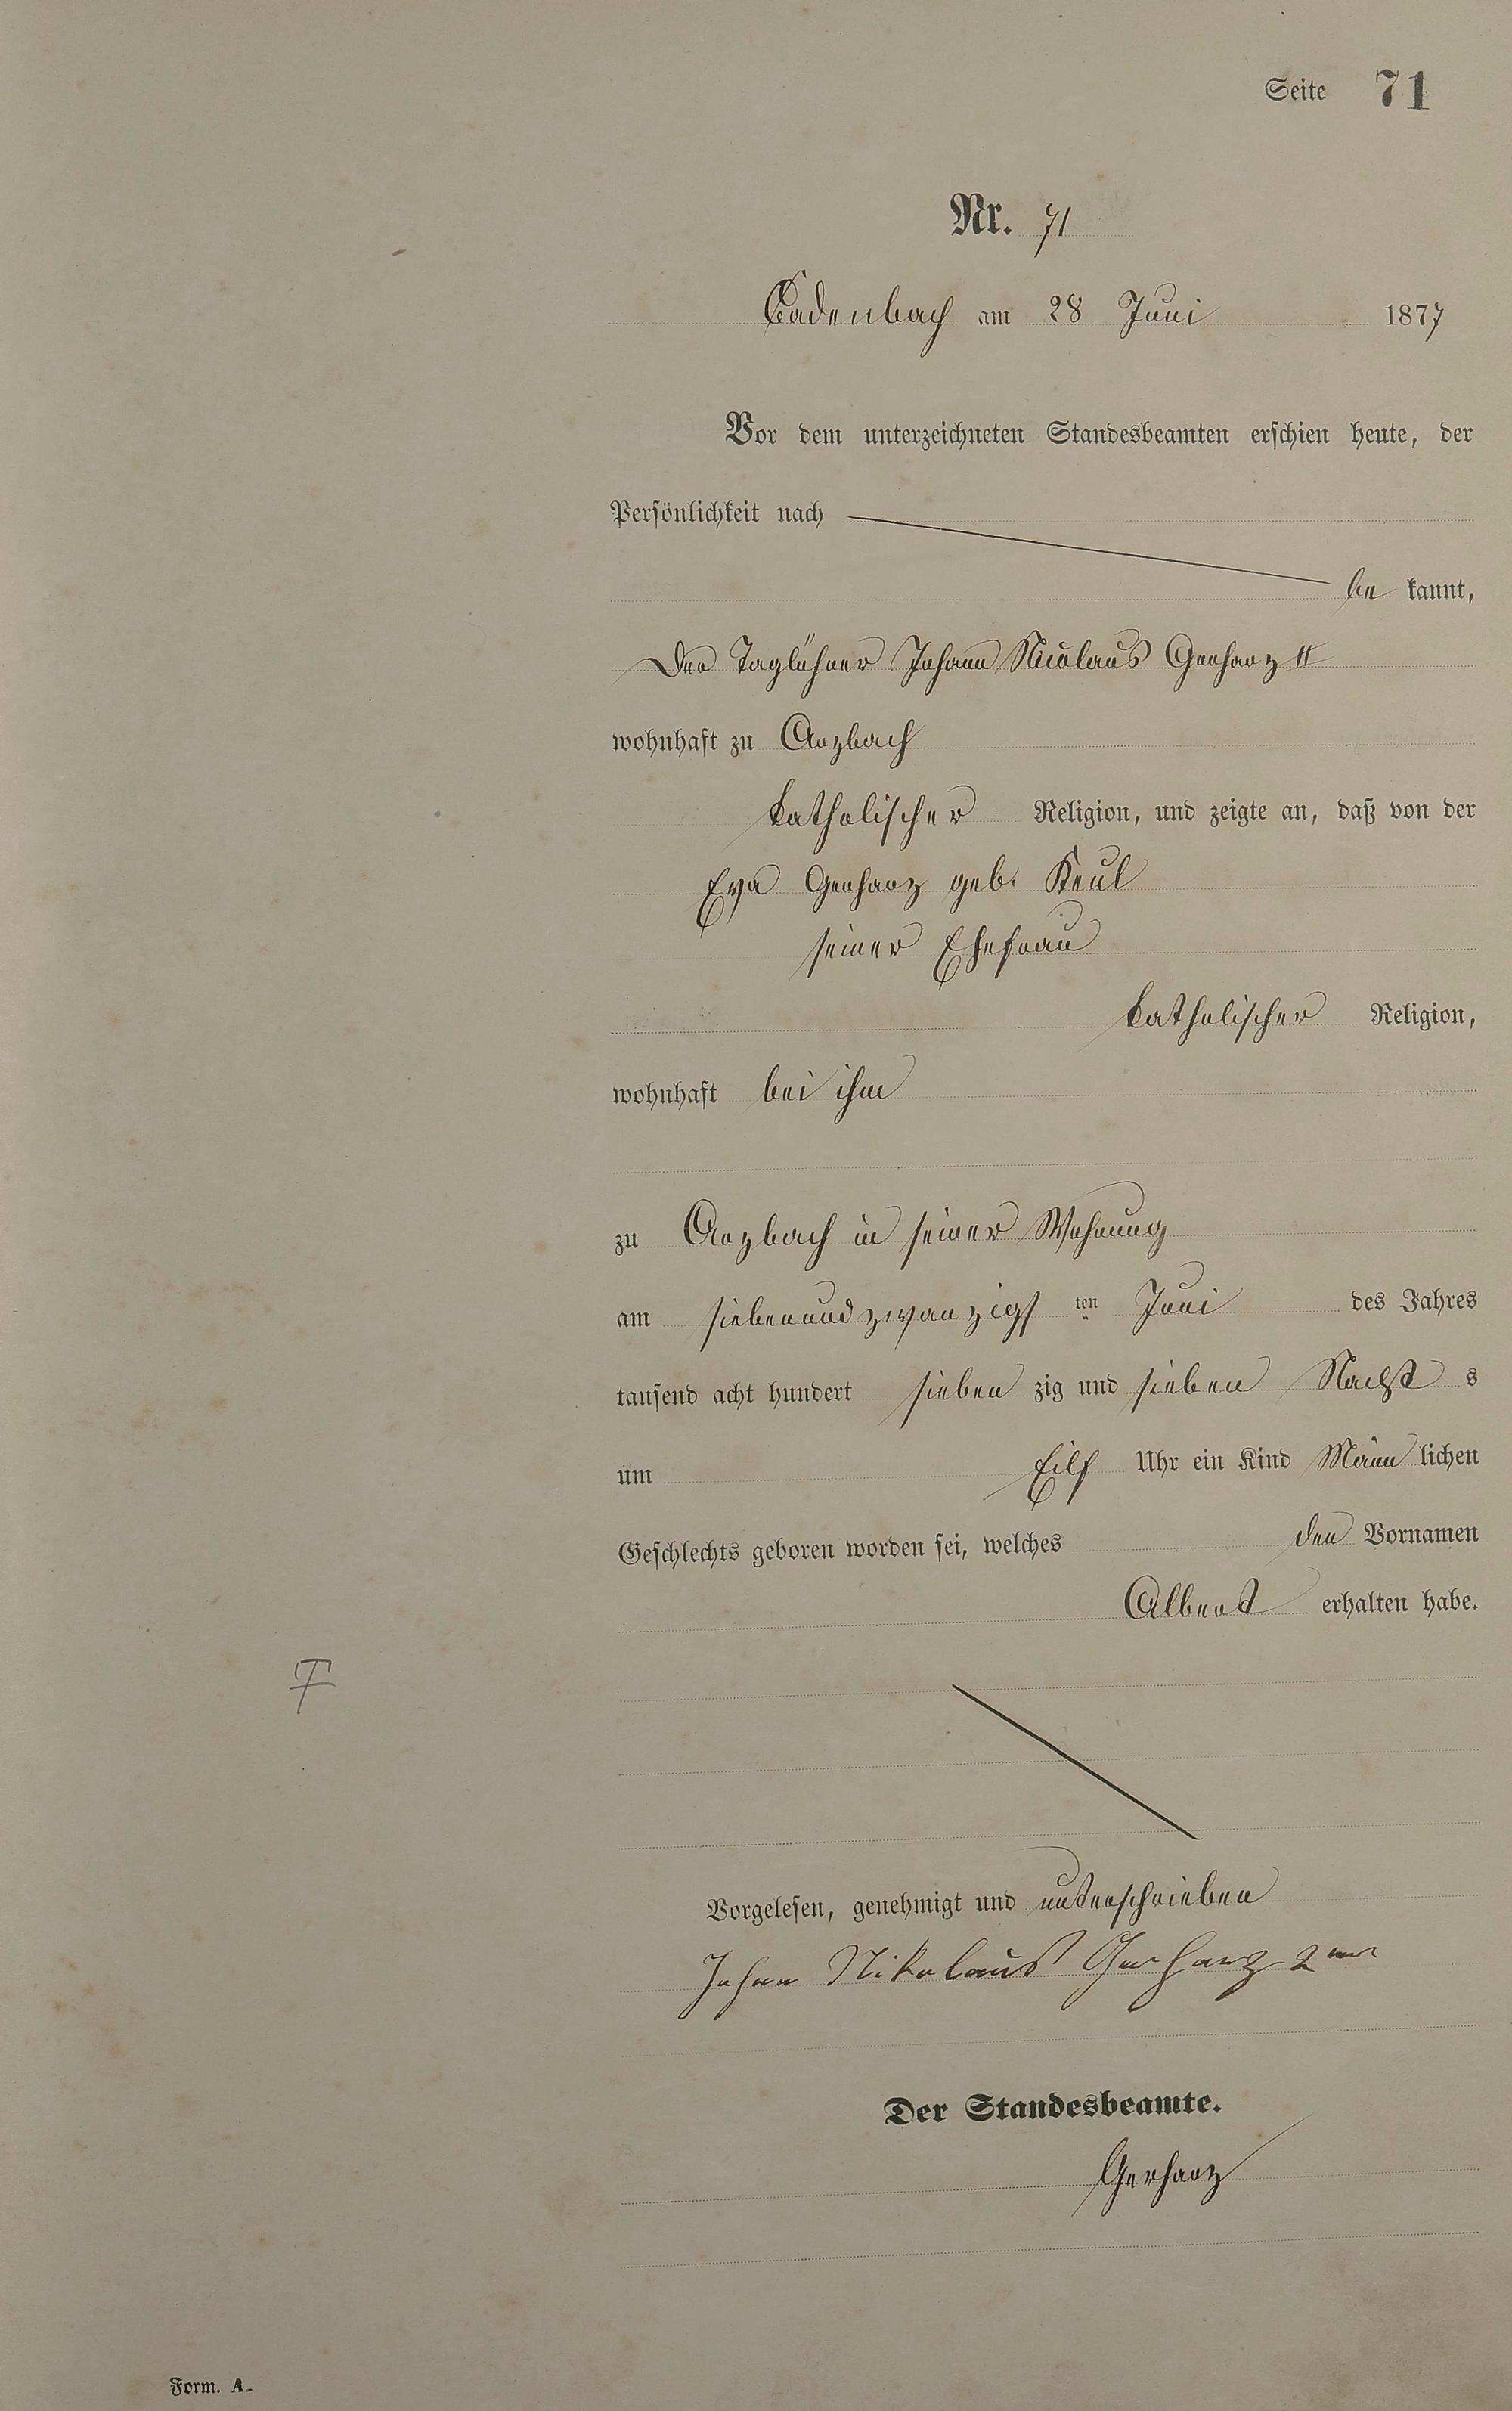 Seite 71
Nr. 71
Cadenbach am 28 Juni 1877
Vor dem unterzeichneten Standesbeamten erschien heute, der
Persönlichkeit nach
be kannt,
Der Taglöhner Johann Nicolaus Gerharz II
wohnhaft zu Arzbach
katholischer Religion, und zeigte an, daß von der
Eva Gerharz geb. Keul
seiner Ehefrau
katholischer Religion,
wohnhaft bei ihm
zu Arzbach in seiner Wohnung
am siebenundzwanzigs ten Juni des Jahres
tausend acht hundert sieben zig und sieben Nachts
um Eilf Uhr ein Kind Männ lichen
Geschlechts geboren worden sei, welches den Vornamen
Albert erhalten habe.
Vorgelesen, genehmigt und unterschrieben
Johan Nikolaus Gerharz 2ter
Der Standesbeamte.
Gerharz
Form. A.